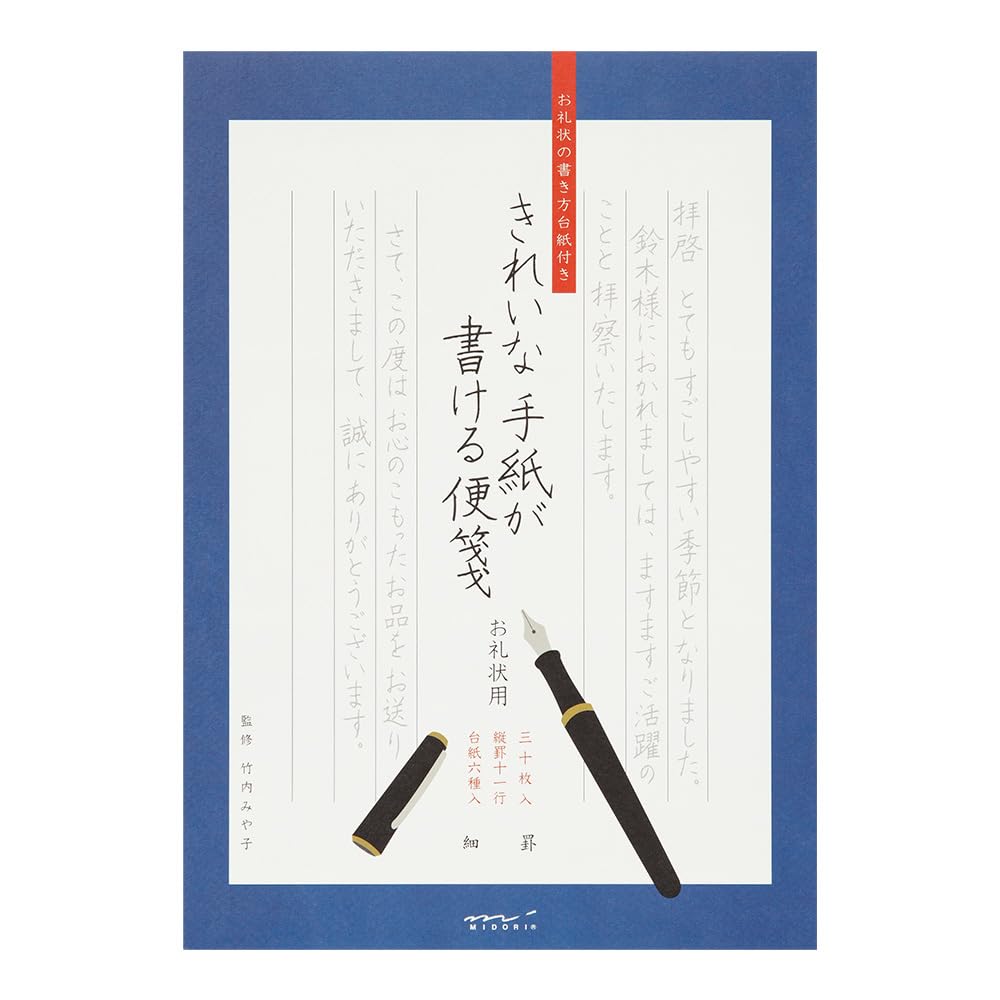 お礼状の書き方台紙付き
拝啓　とてもすごしやすい季節となりました。
鈴木様におかれましては、ますますご活躍の
ことと拝察いたします。
きれいな手紙が
書ける便箋
お礼状用
三十枚入
縦罫十一行
台紙六種入
細罫
さて、この度はお心のこもったお品をお送り
いただきまして、誠にありがとうございます。
監修 竹内みや子
MIDORI®